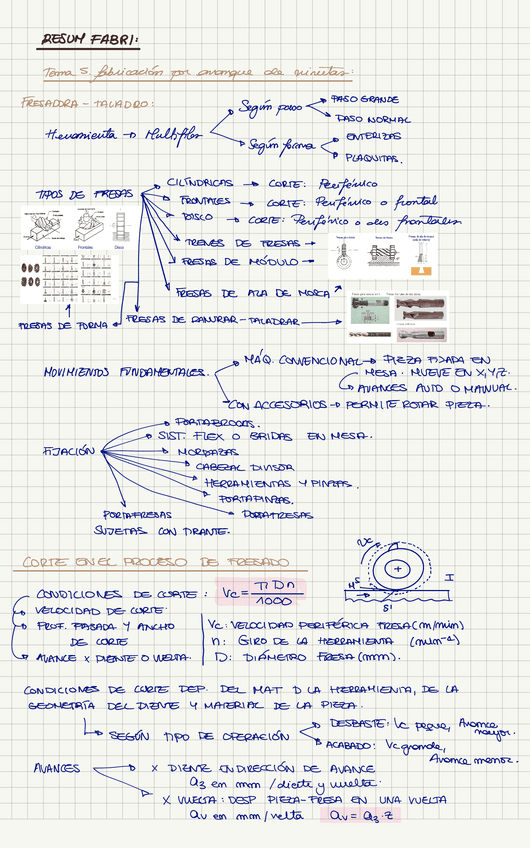 RESUM FABRI:
Tema 5. fabricación por arranque de virutas:
FRESADORA - TALADRO:
Herramienta → Multifilos
Según paso
PASO GRANDE
PASO NORMAL
Según forma
ENTERIZAS
PLAQUITAS.
TIPOS DE FRESAS
CILÍNDRICAS → CORTE: Periférico
FRONTALES → CORTE: Periférico o frontal
DISCO → CORTE: Periférico o dos frontales
TRENES DE FRESAS →
FRESAS DE MÓDULO →
FRESAS DE COLA DE MILANO
Cilíndricas
Frontales
Disco
FRESAS DE FORMA
FRESAS DE RANURAR - TALADRAR
MOVIMIENTOS FUNDAMENTALES.
MÁQ. CONVENCIONAL → PIEZA FIJADA EN
MESA. MUEVE EN X,Y,Z.
AVANCES AUTO O MANUAL.
CON ACCESORIOS → PERMITE ROTAR PIEZA.
FIJACIÓN
PORTABROCAS.
SIST. FLEX O BRIDAS EN MESA.
MORDAZAS
CABEZAL DIVISOR
HERRAMIENTAS Y PINZAS.
PORTAPINZAS.
PORTAFRESAS
PORTAFRESAS
SUJETAS CON TIRANTE.
CORTE EN EL PROCESO DE FRESADO
CONDICIONES DE CORTE: Vc = π D n / 1000
VELOCIDAD DE CORTE
PROF. PASADA Y ANCHO
DE CORTE
AVANCE X DIENTE O VUELTA.
Vc: VELOCIDAD PERIFÉRICA FRESA (m/min)
n: GIRO DE LA HERRAMIENTA (min⁻¹)
D: DIÁMETRO FRESA (mm).
Vc
I
CONDICIONES DE CORTE DEP. DEL MAT D LA HERRAMIENTA, DE LA
GEOMETRÍA DEL DIENTE Y MATERIAL DE LA PIEZA.
SEGÚN TIPO DE OPERACIÓN
DESBASTE: Vc peque, Avance
mayor.
ACABADO: Vc grande,
Avance menor.
AVANCES
X DIENTE EN DIRECCIÓN DE AVANCE
az en mm/diente y vuelta.
X VUELTA: DESP PIEZA-FRESA EN UNA VUELTA
av en mm/velta av = az · z